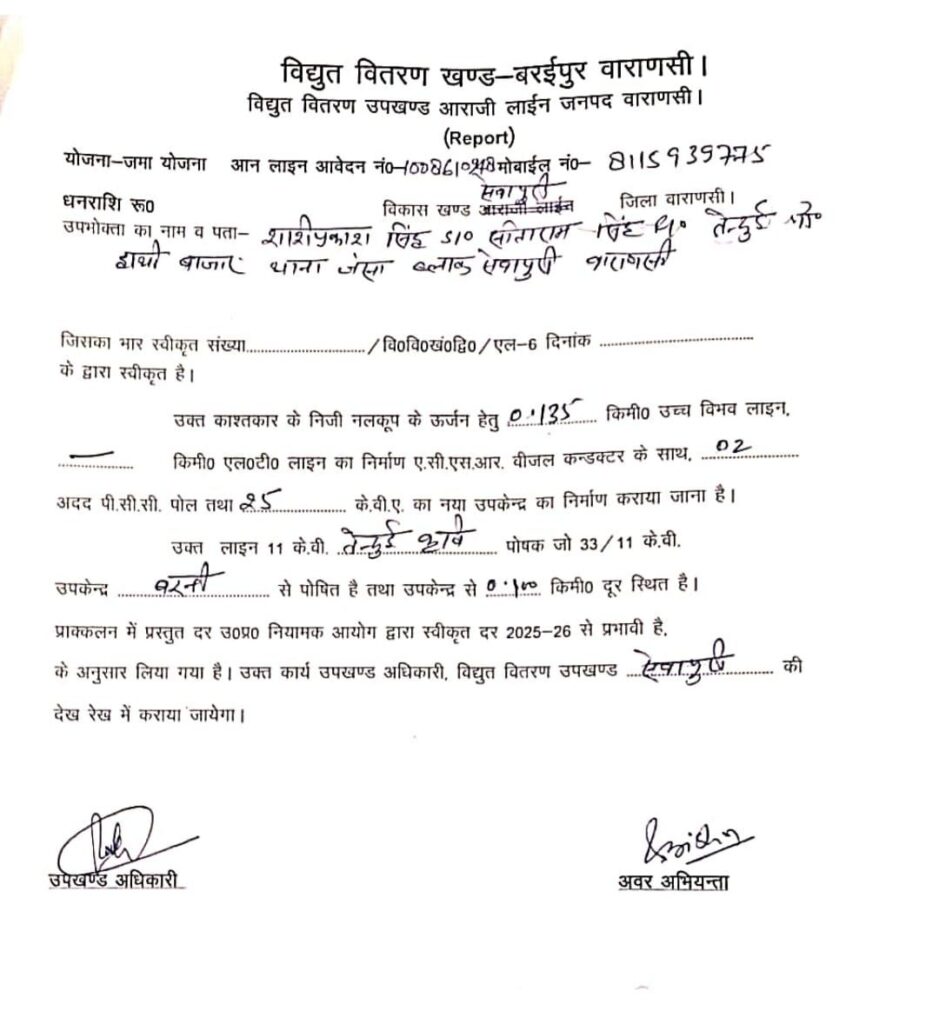 विद्युत वितरण खण्ड–बरईपुर वाराणसी।
विद्युत वितरण उपखण्ड आराजी लाईन जनपद वाराणसी।
(Report)
योजना–जमा योजना आन लाइन आवेदन नं०– मोबाईल नं०– 8115939775
सेवापुरी
धनराशि रू0 विकास खण्ड आराजी लाईन जिला वाराणसी।
उपभोक्ता का नाम व पता– शशिप्रकाश सिंह S/o सीताराम सिंह
हाथी बाजार थाना जंसा ब्लाक सेवापुरी वाराणसी
जिसका भार स्वीकृत संख्या............................/वि०वि०खं०द्वि०/एल–6 दिनांक ....................................
के द्वारा स्वीकृत है।
उक्त काश्तकार के निजी नलकूप के ऊर्जन हेतु 0.135 किमी0 उच्च विभव लाइन,
— किमी0 एल0टी0 लाइन का निर्माण ए.सी.एस.आर. वीजल कन्डक्टर के साथ, 02
अदद पी.सी.सी. पोल तथा 25 के.वी.ए. का नया उपकेन्द्र का निर्माण कराया जाना है।
उक्त लाइन 11 के.वी. तेन्दुई कृषि पोषक जो 33/11 के.वी.
उपकेन्द्र से पोषित है तथा उपकेन्द्र से 0.100 किमी0 दूर स्थित है।
प्राक्कलन में प्रस्तुत दर उ0प्र0 नियामक आयोग द्वारा स्वीकृत दर 2025–26 से प्रभावी है,
के अनुसार लिया गया है। उक्त कार्य उपखण्ड अधिकारी, विद्युत वितरण उपखण्ड सेवापुरी की
देख रेख में कराया जायेगा।
उपखण्ड अधिकारी अवर अभियन्ता